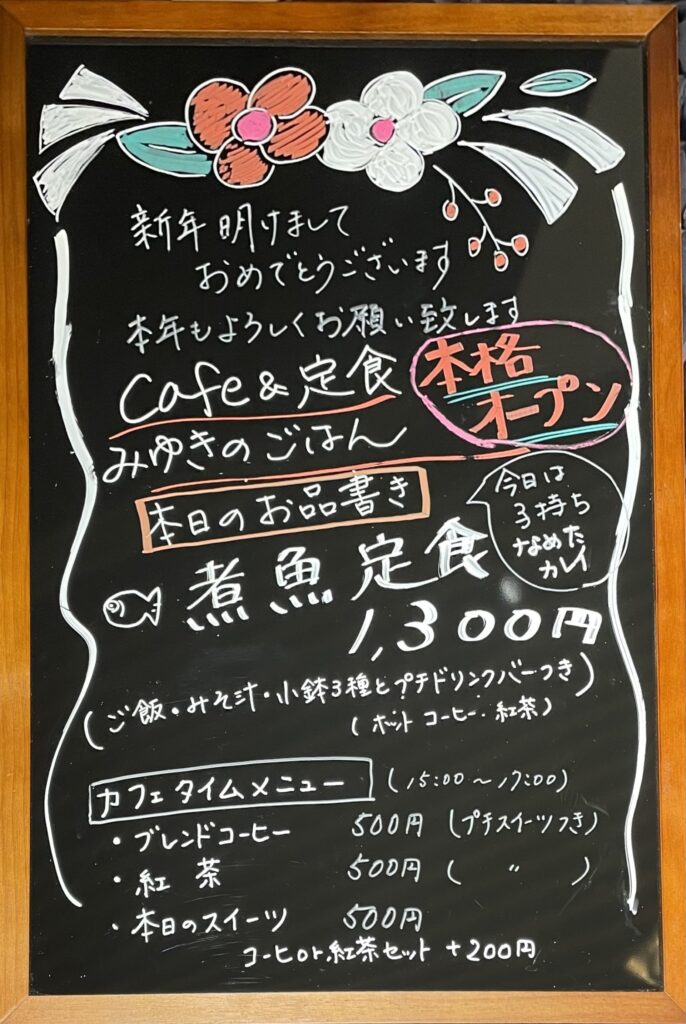 新年 明けまして
おめでとうございます
本年もよろしくお願い致します
Cafe&定食
みゆきのごはん
本格
オープン
本日のお品書き
今日は
子持ち
なめた
カレイ
煮魚定食
1,300円
(ご飯・みそ汁・小鉢3種とプチドリンクバーつき)
(ホット コーヒー・紅茶)
カフェタイムメニュー (15:00〜17:00)
・ブレンドコーヒー 500円 (プチスイーツつき)
・紅茶 500円 ( 〃 )
・本日のスイーツ 500円
コーヒor紅茶セット +200円